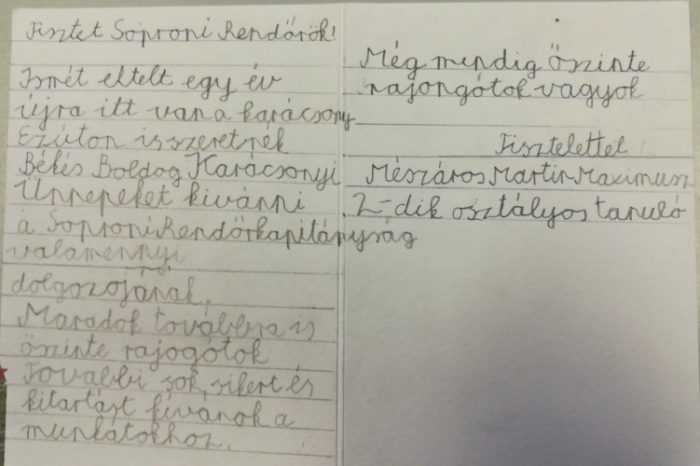 Tisztet Soproni Rendőrök!
Ismét eltelt egy év
újra itt van a karácsony
Ezúton is szeretnék
Békés Boldog Karácsonyi
Ünnepeket kivánni
a Soproni Rendőrkapitányság
valamennyi
dolgozojának.
Maradok továbbra is
őszinte rajogótok
További sok sikert és
kitartást kívánok a
munkátokhoz.
Még mindig őszinte
rajongótok vagyok
Tisztelettel
Mészáros Martin Maximusz
2-dik osztályos tanuló